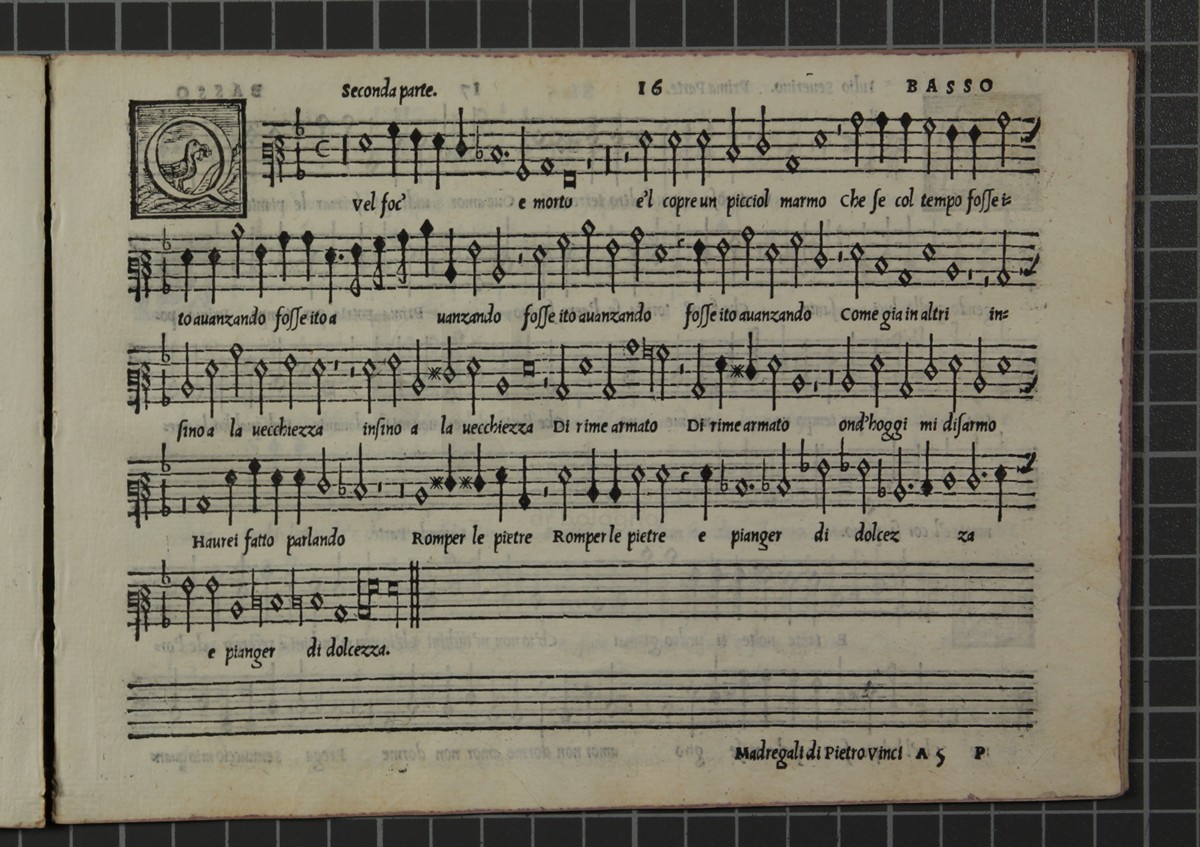 Seconda parte. 16 BASSO
QVel foc' e morto e'l copre un picciol marmo Che se col tempo fosse i=
to auanzando fosse ito a uanzando fosse ito auanzando fosse ito auanzando Come gia in altri in=
sino a la uecchiezza insino a la uecchiezza Di rime armato Di rime armato ond'hoggi mi disarmo
Haurei fatto parlando Romper le pietre Romper le pietre e pianger di dolcez za
e pianger di dolcezza.
Madregali di Pietro Vinci A 5 P